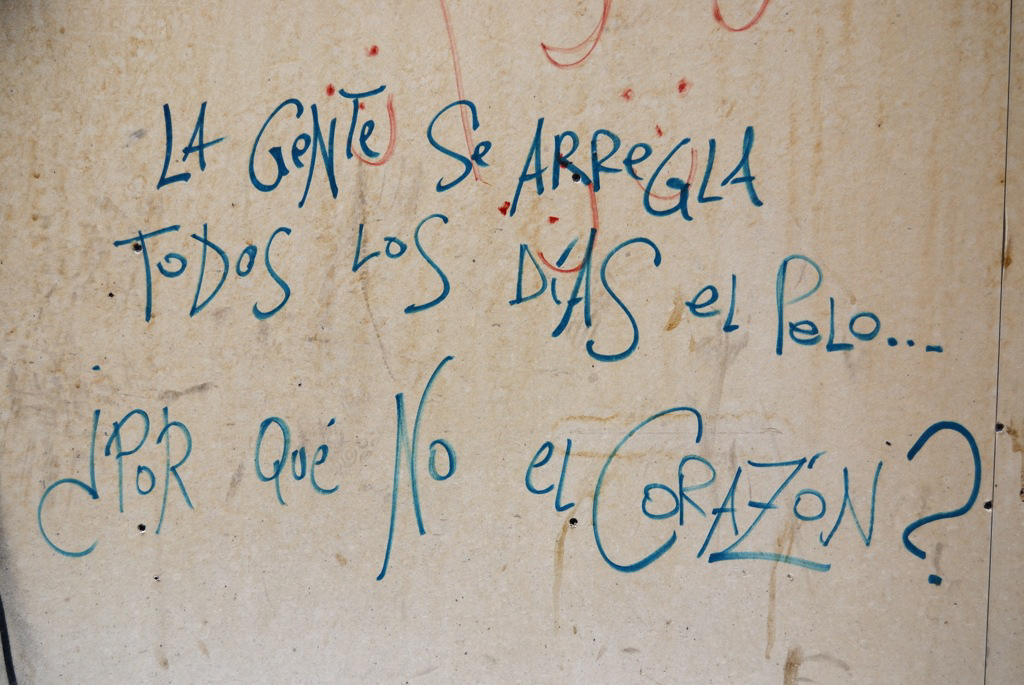 LA GeNTe Se ARReGLA
TODOS LOS DÍAS eL PeLO...
¿POR Qué NO eL CORAZÓN?